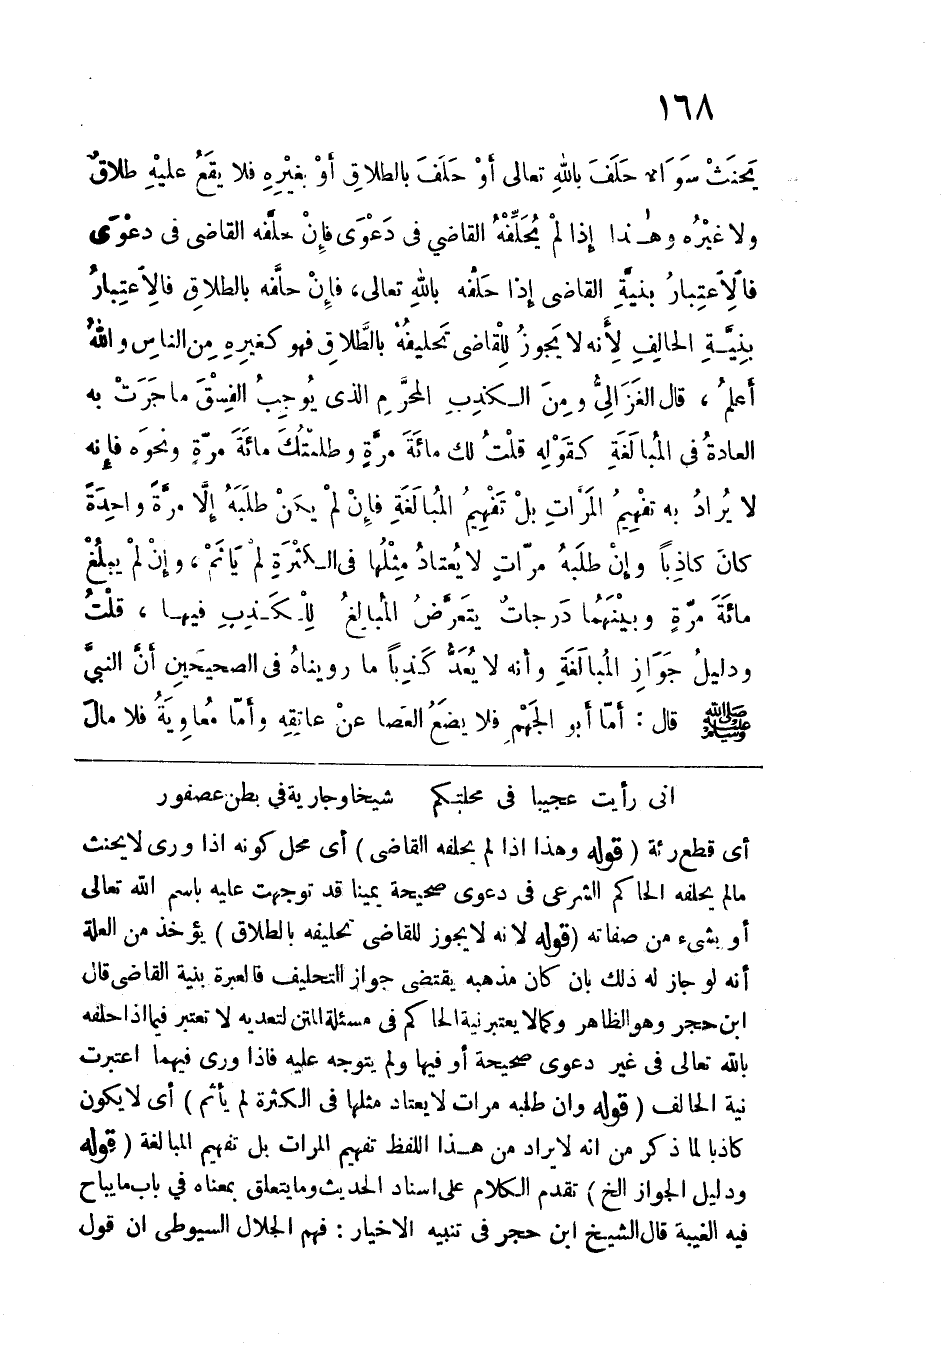 ١٦٨
يَحنَثْ سَوَاءٌ حَلَفَ باللهِ تعالى أوْ حَلَفَ بالطلاقِ أوْ بغيْرِهِ فلا يقَعُ عليْهِ طلاقٌ
ولا غيْرُه وهـٰذا إذا لمْ يُحَلِّفْهُ القاضي فى دَعْوَى فإنْ حلَّفه القاضى فى دعْوَى
فالِاعتِبارُ بنيَّةِ القاضى إذا حَلَّفه باللهِ تعالى، فإنْ حلَّفه بالطلاقِ فالِاعتِبارُ
بنِيَّـةِ الحالِفِ لِأَنه لا يَجوزُ لِلْقاضى تَحليفُهُ بالطَّلاقِ فهو كغيرِهِ مِن الناسِ واللهُ
أعلمُ ، قال الغَزَالِيُّ ومِنَ الـكذِبِ المحرَّمِ الذى يُوجِبُ الفِسْقَ ما جَرَتْ به
العادةُ فى المُبالَغَةِ كقَوْلِهِ قلْتُ لك مائَةَ مرَّةٍ وطلبْتُكَ مائَةَ مرّةٍ ونحوَه فإنه
لا يُرادُ به تفْهِيمُ المَرَّاتِ بلْ تَفْهِيمُ المُبالَغَةِ فإنْ لمْ يكنْ طلَبَهُ إلَّا مرَّةً واحِدَةً
كانَ كاذِباً وإنْ طلَبَهُ مرّاتٍ لا يُعتادُ مِثْلُها فى الـكثْرَةِ لمْ يَأثَمْ ، وإنْ لمْ يبلُغْ
مائَةَ مَرّةٍ وبيْنَهُما دَرجاتٌ يتَعرَّضُ المُبالِغُ لِلْـكَـذِبِ فيهـا ، قلْتُ
ودليلُ جَوَازِ المُبالَغَةِ وأنه لا يُعَدُّ كَذِباً ما رويناهُ فى الصحيحَينِ أنَّ النبيَّ
ﷺ قال : أمّا أبو الجَهْمِ فلا يضَعُ العَصا عنْ عاتِقِهِ وأمّا مُعاوِيَةُ فلا مالَ
انى رأيت عجيبا فى محلتـكم شيخا وجارية في بطن عصفور
أى قطع رئة ( قوله وهذا اذا لم يحلفه القاضى ) أى محل كونه اذا ورى لا يحنث
مالم يحلفه الحاكم الشرعى فى دعوى صحيحة يمينا قد توجهت عليه باسم الله تعالى
أو بشىء من صفاته (قوله لانه لايجوز للقاضى تحليفه بالطلاق ) يؤخذ من العلة
أنه لو جاز له ذلك بان كان مذهبه يقتضى جواز التحليف فالعبرة بنية القاضى قال
ابن حجر وهو الظاهر وكما لا يعتبر نية الحاكم فى مسئلة المتن لتعديه لا تعتبر فيما اذا حلفه
بالله تعالى فى غير دعوى صحيحة أو فيها ولم يتوجه عليه فاذا ورى فيهما اعتبرت
نية الحالف ( قوله وان طلبه مرات لا يعتاد مثلها فى الكثرة لم يأثم ) أى لا يكون
كاذبا لما ذكر من انه لا يراد من هـذا اللفظ تفهيم المرات بل تفهيم المبالغة ( قوله
ودليل الجواز الخ ) تقدم الكلام على اسناد الحديث وما يتعلق بمعناه في باب ما يباح
فيه الغيبة قال الشيخ ابن حجر فى تنبيه الاخيار : فهم الجلال السيوطى ان قول